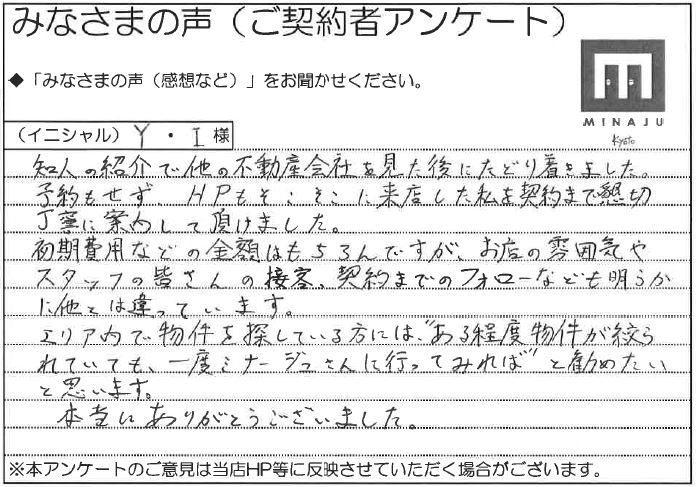 みなさまの声（ご契約者アンケート）
◆「みなさまの声（感想など）」をお聞かせください。
MINAJU
Kyoto
（イニシャル）Y・I様
知人の紹介で他の不動産会社を見た後にたどり着きました。
予約もせず、HPもそこそこに来店した私を契約まで懇切
丁寧に案内して頂けました。
初期費用などの金額はもちろんですが、お店の雰囲気や
スタッフの皆さんの接客、契約までのフォローなども明らか
に他とは違っています。
エリア内で物件を探している方には、"ある程度物件が絞ら
れていても、一度ミナージュさんに行ってみれば"と勧めたい
と思います。
本当にありがとうございました。
※本アンケートのご意見は当店HP等に反映させていただく場合がございます。